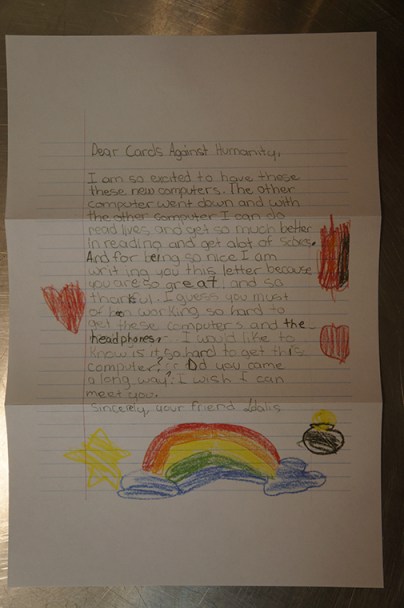 Dear Cards Against Humanity,
I am so excited to have these
these new computers. The other
computer went down and with
the other computer I can do
read lives and get so much better
in reading and get alot of
And for being so nice I am
writing you this letter because
you are so great, and so
thankful. I guess you must
of ben working so hard to
get these computers and the
headphones. I would like to
know is it so hard to get this
computer? Did you came
a long way? I wish I can
meet you.
Sincerely, your friend